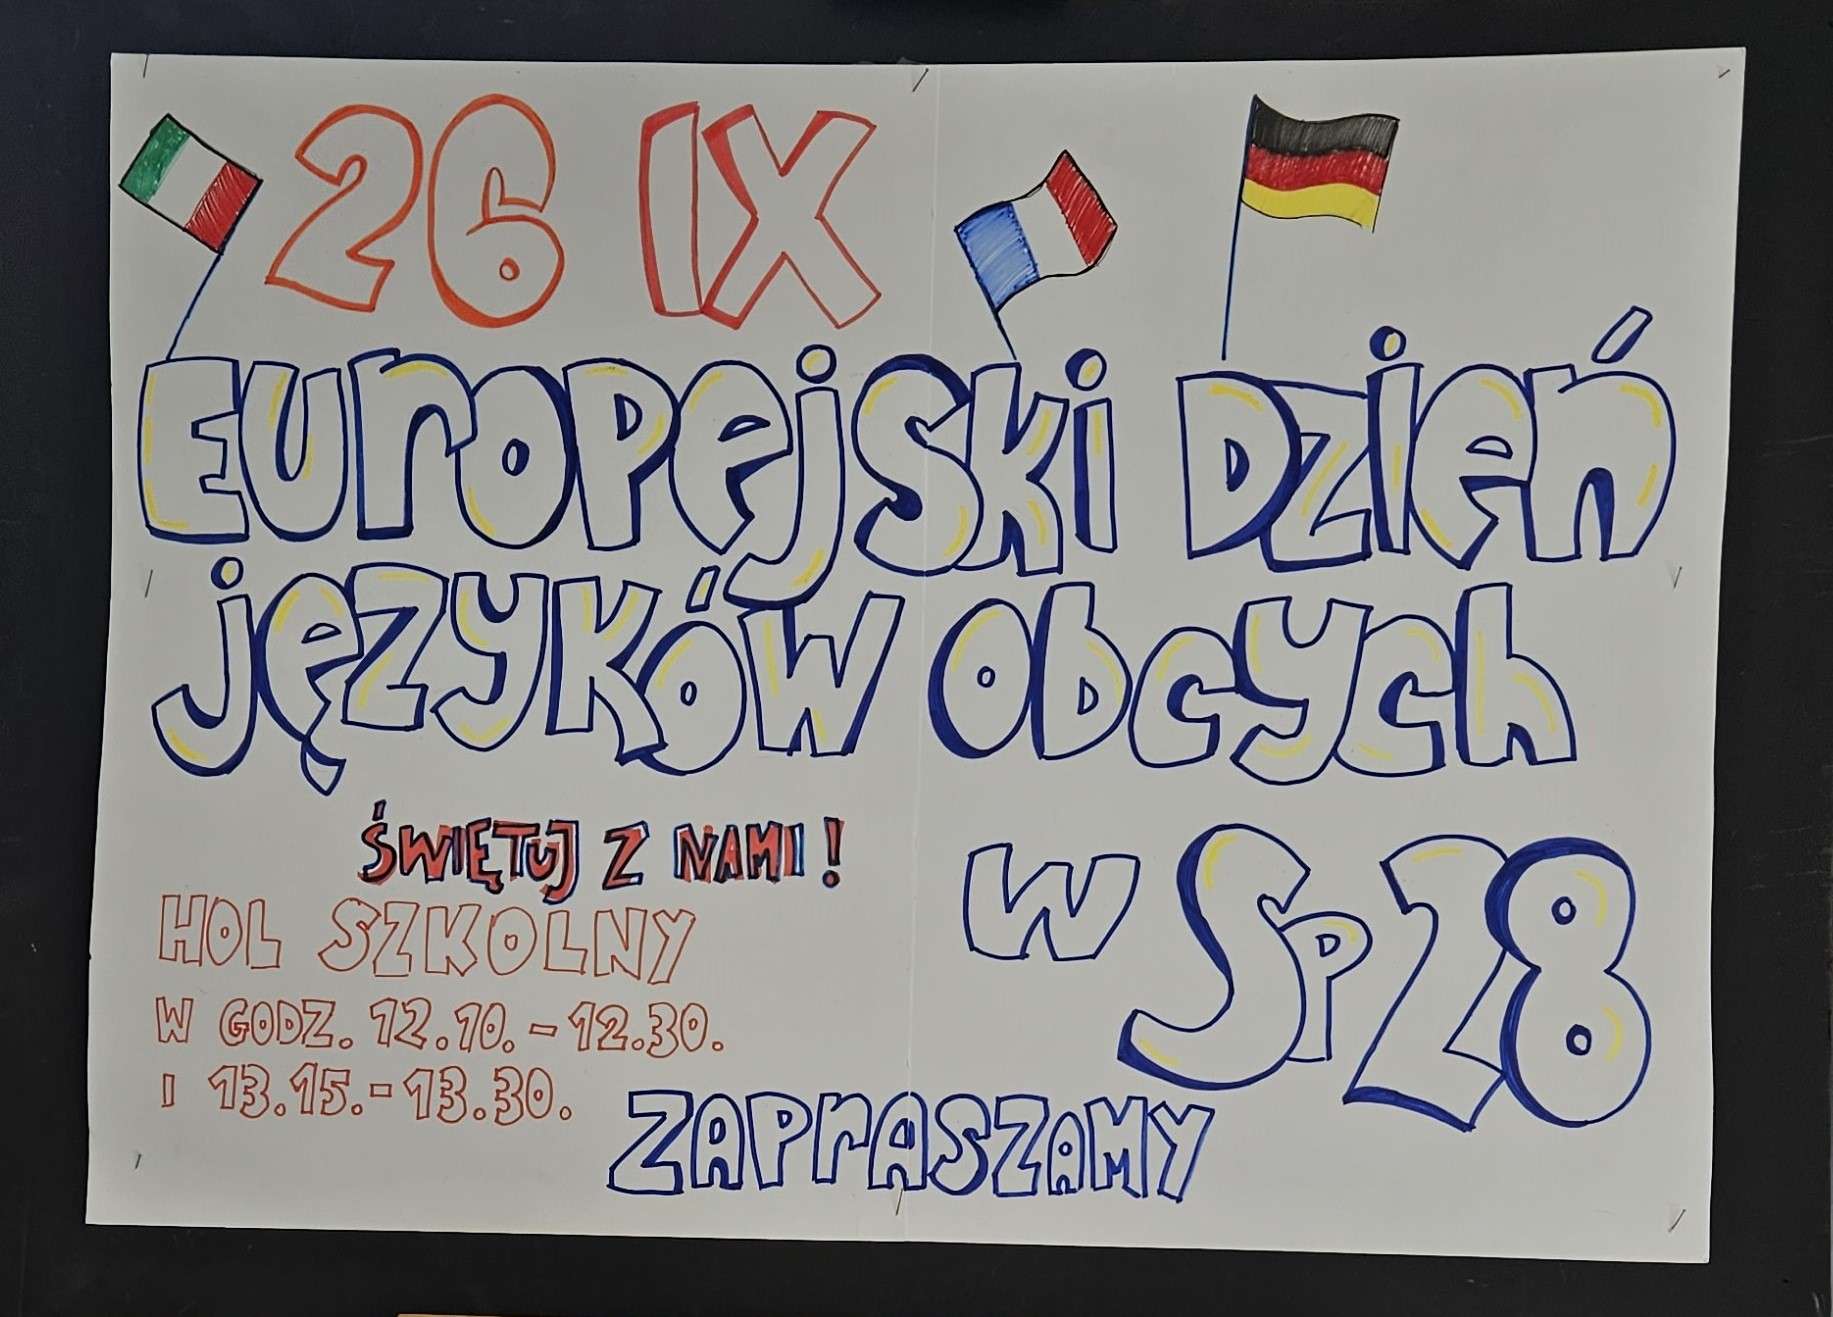 26 IX
Europejski Dzień
języków obcych
ŚWIĘTUJ Z NAMI!
HOL SZKOLNY
W GODZ. 12.10. - 12.30.
I 13.15. - 13.30.
W SP 28
ZAPRASZAMY